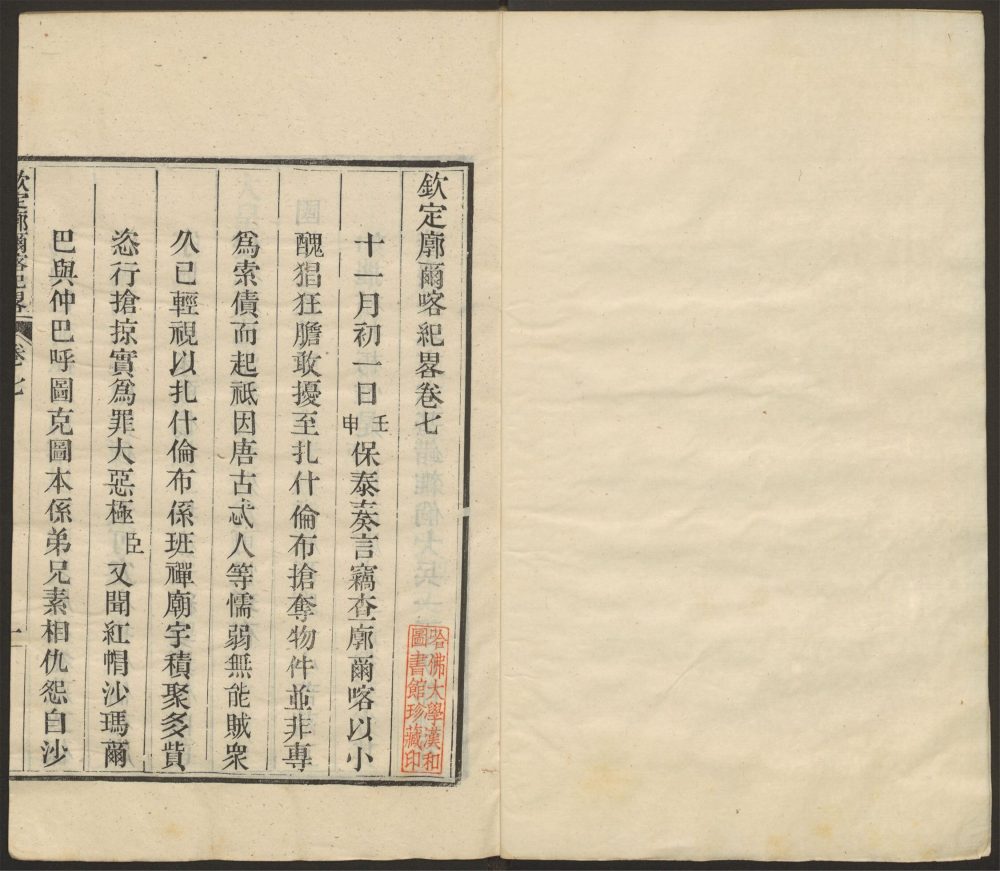 欽定廓爾喀紀畧卷七
十一月初一日壬申保泰奏言竊查廓爾喀以小
醜猖狂膽敢擾至扎什倫布搶奪物件並非專
爲索債而起祗因唐古忒人等懦弱無能賊衆
久已輕視以扎什倫布係班禪廟宇積聚多貲
恣行搶掠實爲罪大惡極臣又聞紅帽沙瑪爾
巴與仲巴呼圖克圖本係弟兄素相仇怨自沙
欽定廓爾喀紀畧
卷七
一
哈佛大學漢和
圖書館珍藏印